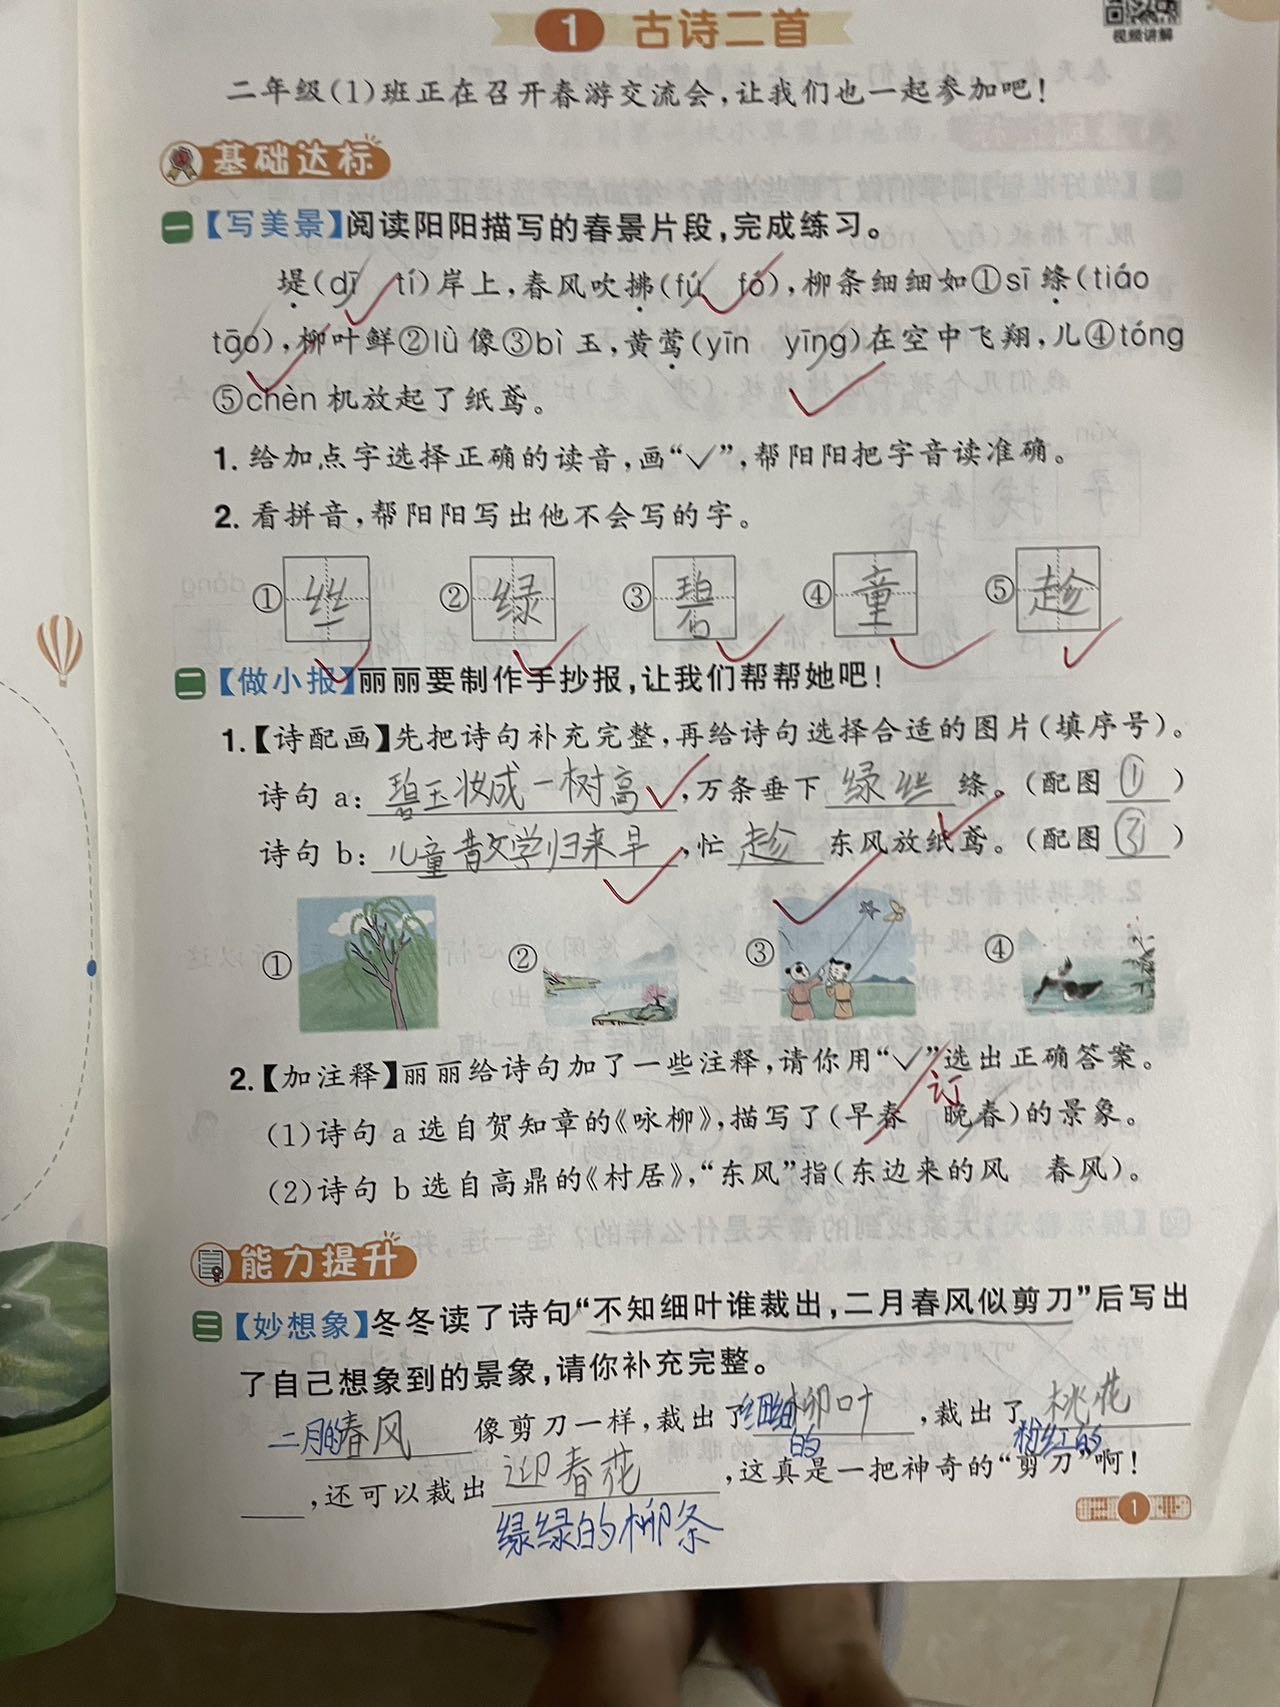 1 古诗二首
视频讲解
二年级(1)班正在召开春游交流会,让我们也一起参加吧!
基础达标
一【写美景】阅读阳阳描写的春景片段,完成练习。
堤(dī tí)岸上,春风吹拂(fú fó),柳条细细如①sī 绦(tiáo
tāo),柳叶鲜②lǜ像③bì玉,黄莺(yīn yīng)在空中飞翔,儿④tóng
⑤chèn机放起了纸鸢。
1. 给加点字选择正确的读音,画“✓”,帮阳阳把字音读准确。
2. 看拼音,帮阳阳写出他不会写的字。
①丝 ②绿 ③碧 ④童 ⑤趁
二【做小报】丽丽要制作手抄报,让我们帮帮她吧!
1.【诗配画】先把诗句补充完整,再给诗句选择合适的图片(填序号)。
诗句a:碧玉妆成一树高,万条垂下绿丝绦。(配图①)
诗句b:儿童散学归来早,忙趁东风放纸鸢。(配图③)
① ② ③ ④
2.【加注释】丽丽给诗句加了一些注释,请你用“✓”选出正确答案。
订
(1)诗句a选自贺知章的《咏柳》,描写了(早春 晚春)的景象。
(2)诗句b选自高鼎的《村居》,“东风”指(东边来的风 春风)。
能力提升
三【妙想象】冬冬读了诗句“不知细叶谁裁出,二月春风似剪刀”后写出
了自己想象到的景象,请你补充完整。
二月的春风像剪刀一样,裁出了细细的柳叶,裁出了粉红的桃花
,还可以裁出迎春花,这真是一把神奇的“剪刀”啊!
绿绿的柳条
1